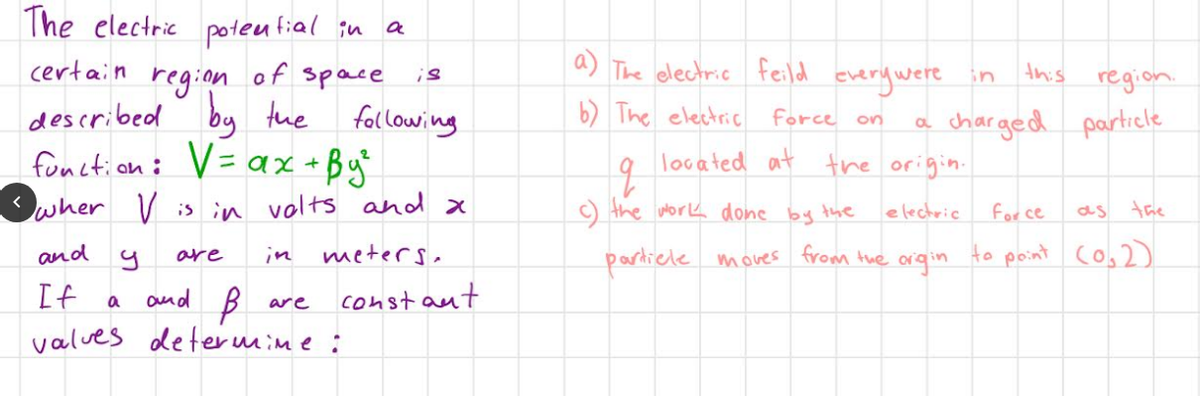 The electric potential in a
certain region of space is
described by the following
function: V = ax + βy²
wher V is in volts and x
and y are in meters.
If a and β are constant
values determine :
a) The electric feild everywere in this region.
b) The electric force on a charged particle
q located at the origin.
c) the work done by the electric force as the
particle moves from the origin to point (0,2)